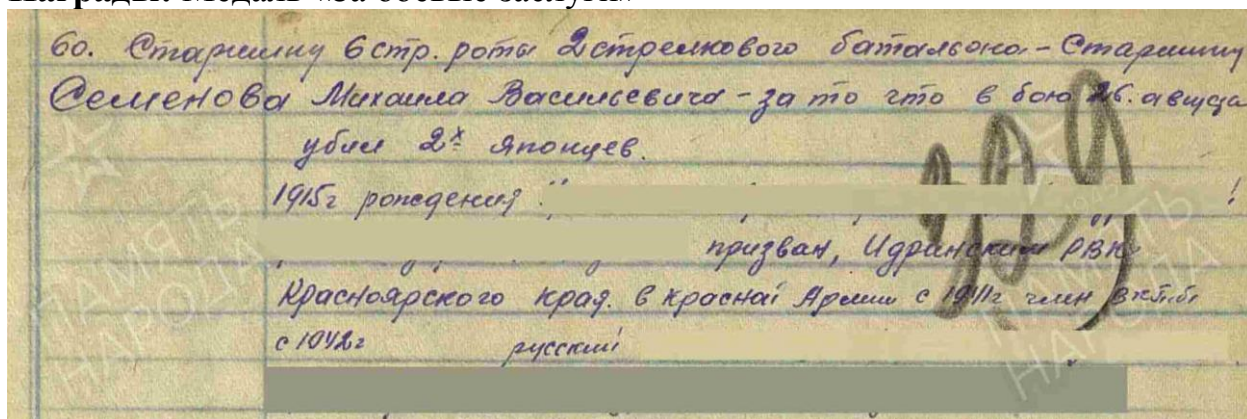 Награды: Медаль «За боевые заслуги»
60. Старшину 6 стр. роты 2 стрелкового батальона - Старшину
Семенова Михаила Васильевича - за то что в бою 26. августа
убил 2х японцев.
1915г рождения
призван, Идринским РВК
Красноярского края. в красной Армии с 1941г член ВКП.б.
с 1942г русский
ПАМЯТЬ НАРОДА
ПАМЯТЬ НАРОДА